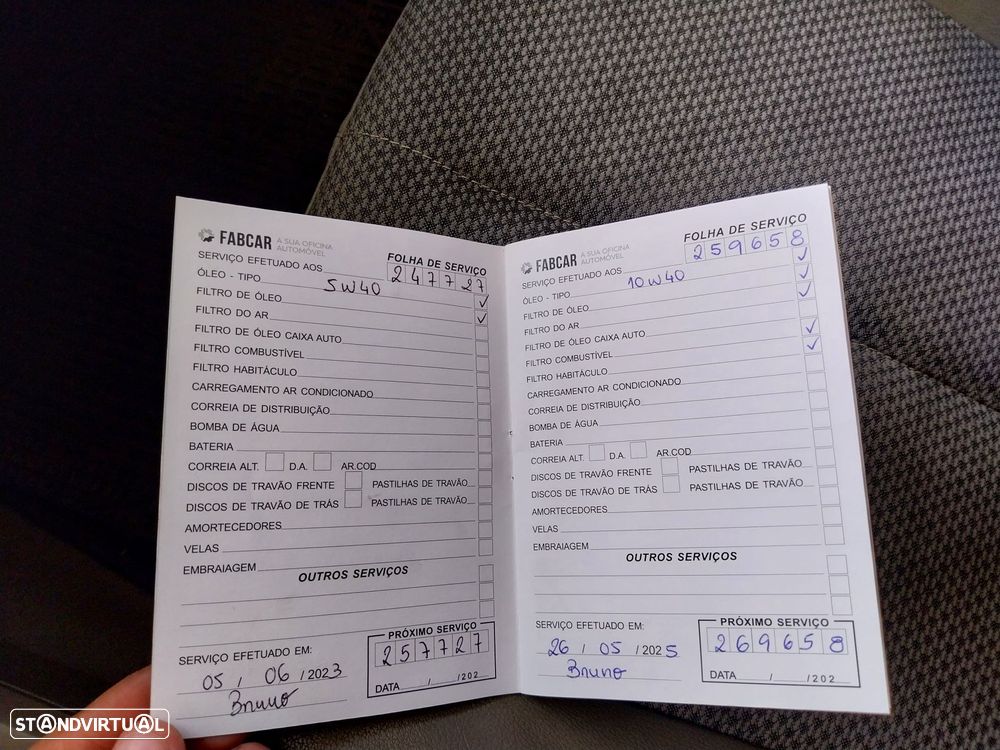 FABCAR A SUA OFICINA AUTOMÓVEL
FOLHA DE SERVIÇO
SERVIÇO EFETUADO AOS 247727
ÓLEO - TIPO 5W40 ✓
FILTRO DE ÓLEO ✓
FILTRO DO AR
FILTRO DE ÓLEO CAIXA AUTO
FILTRO COMBUSTÍVEL
FILTRO HABITÁCULO
CARREGAMENTO AR CONDICIONADO
CORREIA DE DISTRIBUIÇÃO
BOMBA DE ÁGUA
BATERIA
CORREIA ALT. D.A. AR.COD
DISCOS DE TRAVÃO FRENTE PASTILHAS DE TRAVÃO
DISCOS DE TRAVÃO DE TRÁS PASTILHAS DE TRAVÃO
AMORTECEDORES
VELAS
EMBRAIAGEM
OUTROS SERVIÇOS
SERVIÇO EFETUADO EM:
05 / 06 / 2023
Bruno
PRÓXIMO SERVIÇO
257727
DATA / /202
FABCAR A SUA OFICINA AUTOMÓVEL
FOLHA DE SERVIÇO
SERVIÇO EFETUADO AOS 259658
ÓLEO - TIPO 10W40 ✓
FILTRO DE ÓLEO ✓
FILTRO DO AR ✓
FILTRO DE ÓLEO CAIXA AUTO
FILTRO COMBUSTÍVEL ✓
FILTRO HABITÁCULO ✓
CARREGAMENTO AR CONDICIONADO
CORREIA DE DISTRIBUIÇÃO
BOMBA DE ÁGUA
BATERIA
CORREIA ALT. D.A. AR.COD
DISCOS DE TRAVÃO FRENTE PASTILHAS DE TRAVÃO
DISCOS DE TRAVÃO DE TRÁS PASTILHAS DE TRAVÃO
AMORTECEDORES
VELAS
EMBRAIAGEM
OUTROS SERVIÇOS
SERVIÇO EFETUADO EM:
26 / 05 / 2025
Bruno
PRÓXIMO SERVIÇO
269658
DATA / /202
STANDVIRTUAL